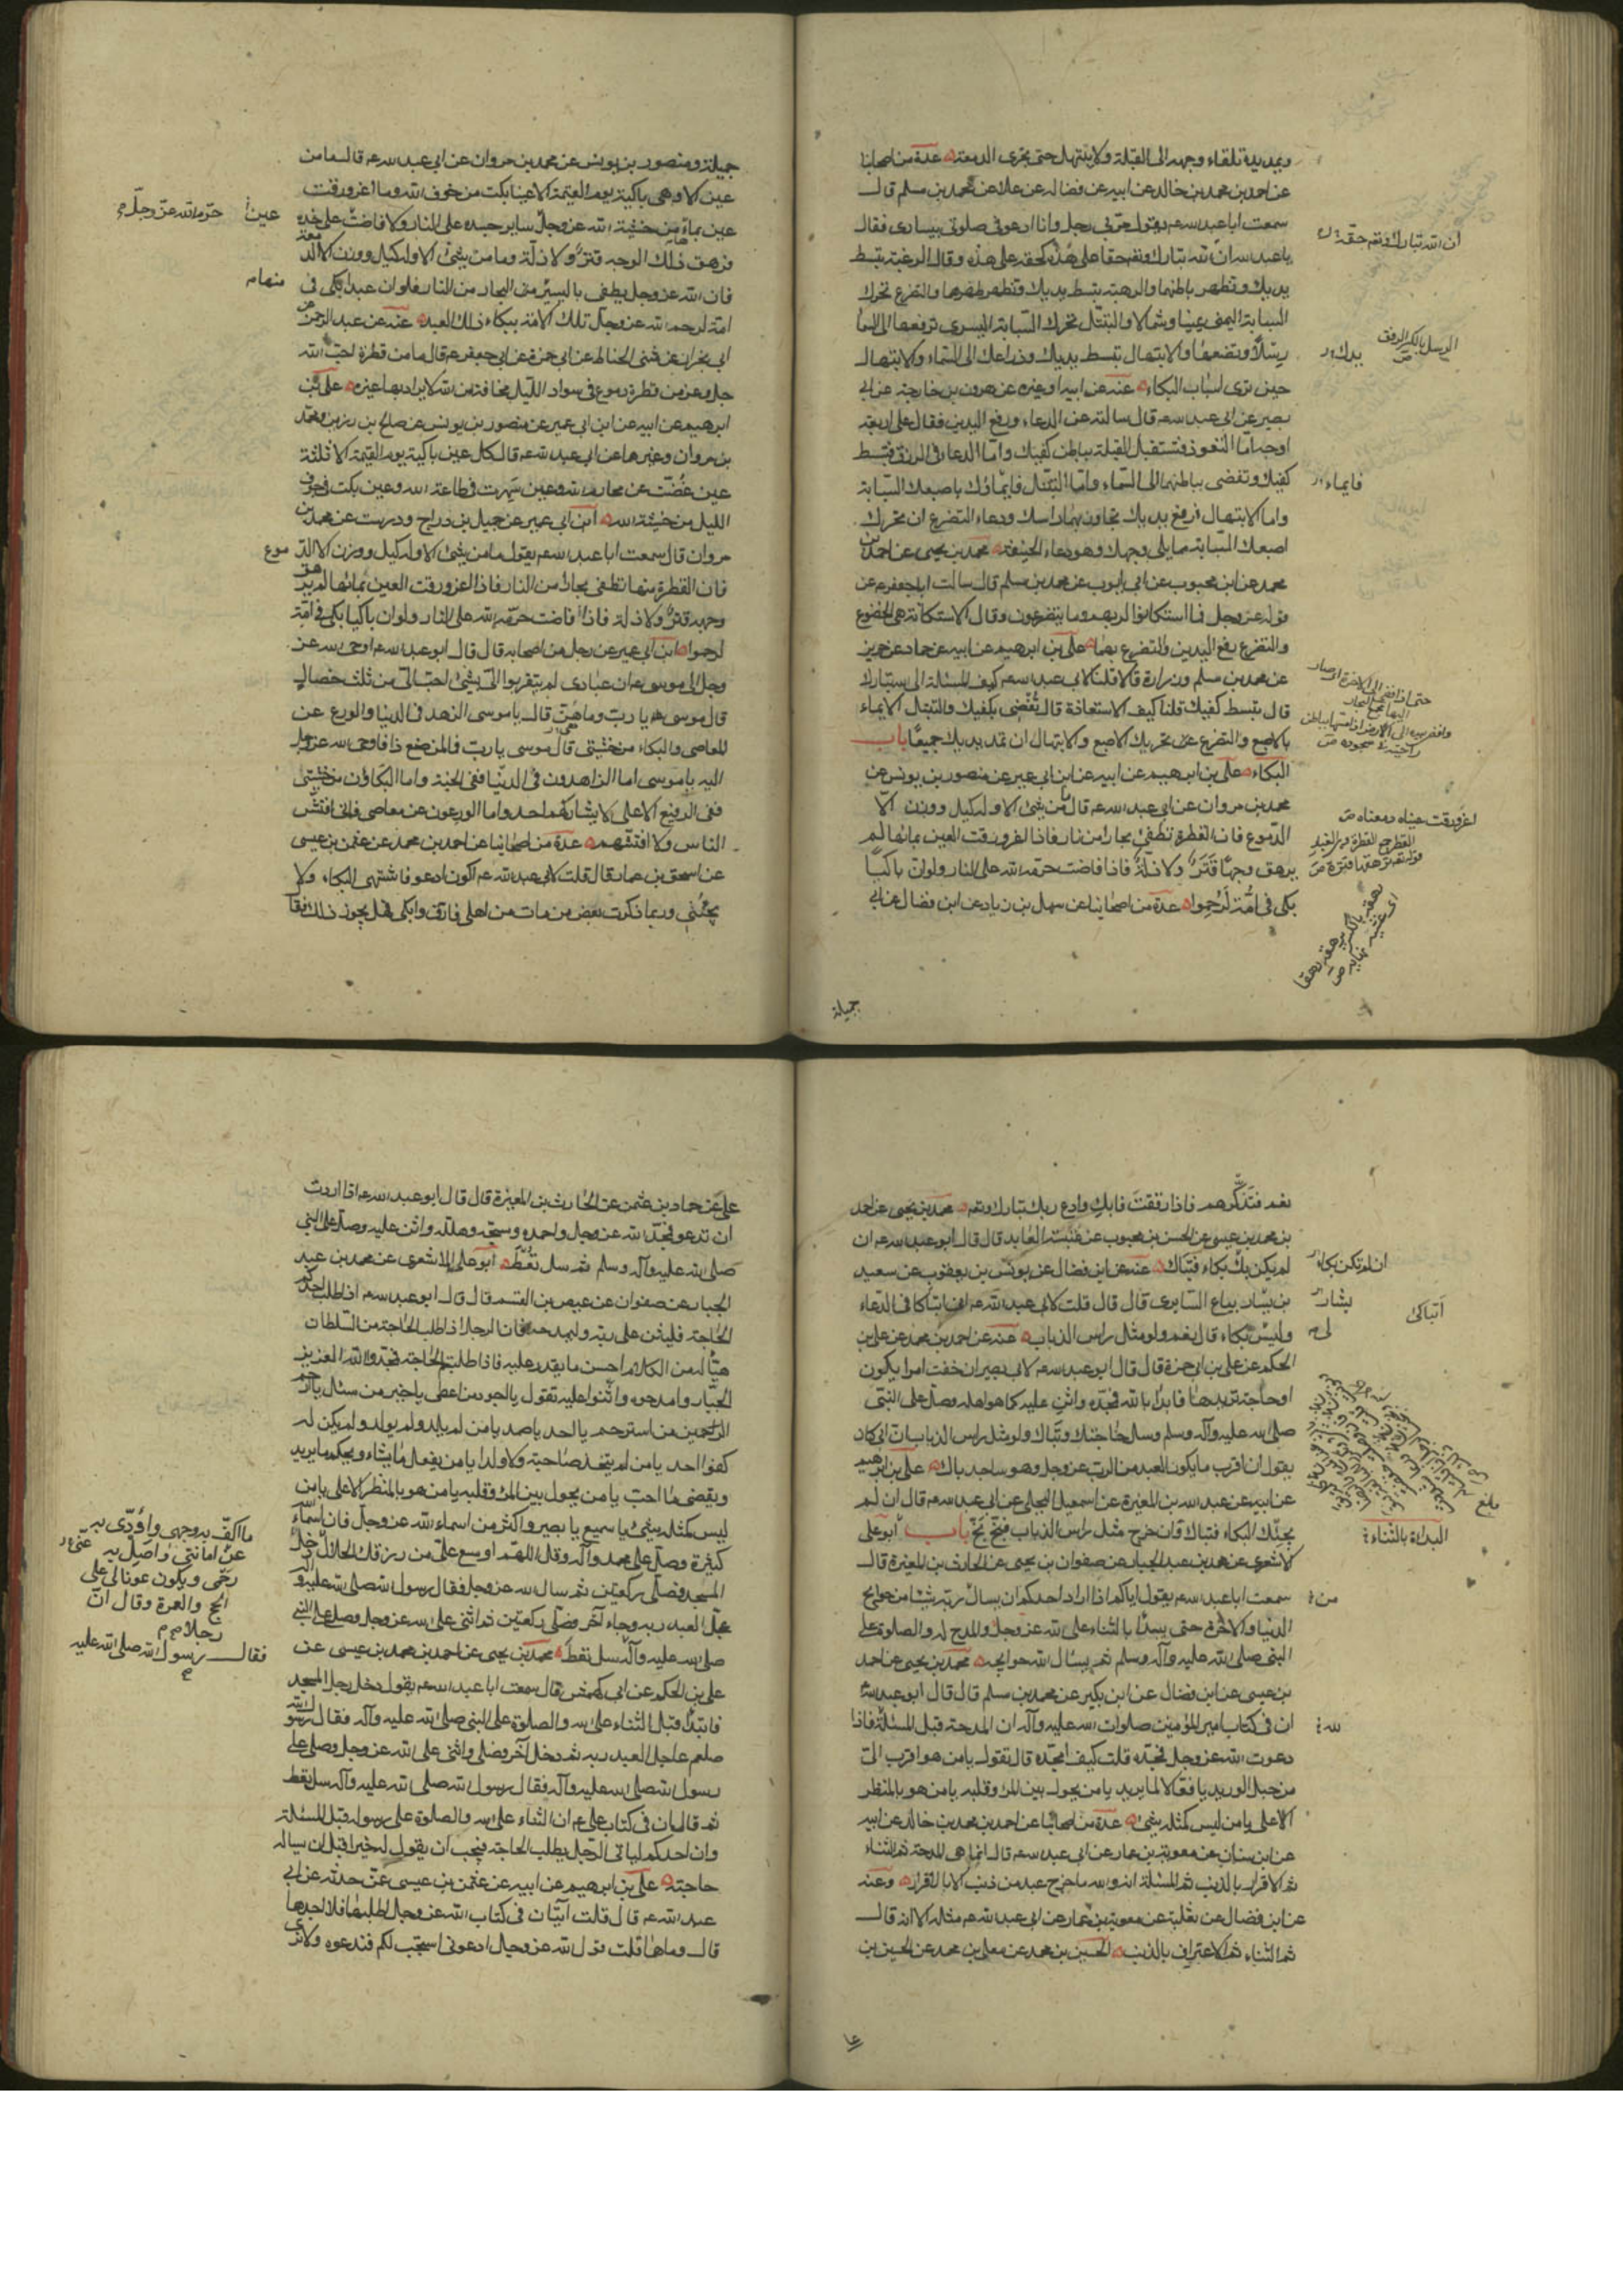 ويمد يديه تلقاء وجهه الى القبلة ولا يبتهل حتى يجرى الدمعة عدة من اصحابنا
عن احمد بن محمد بن خالد عن ابيه عن فضاله عن علا عن محمد بن مسلم قال
سمعت ابا عبد الله ع يقول مر بى رجل وانا ادعو فى صلوتى بيسارى فقال
يا عبد الله ان لله تبارك وتعالى حقا على هذه كحقه على هذه وقال الرغبة تبسط
يديك وتظهر باطنهما والرهبة تبسط يديك وتظهر ظهرهما والتضرع تحرك
السبابة اليمنى يمينا وشمالا والتبتل تحرك السبابة اليسرى ترفعها الى السماء
رسلا وتضعها والابتهال تبسط يديك وذراعك الى السماء والابتهال
حين ترى اسباب البكاء عنه عن ابيه او غيره عن هرون بن خارجة عن ابى
بصير عن ابى عبد الله ع قال سالته عن الدعاء ورفع اليدين فقال على اربعة
اوجه اما التعوذ فتستقبل القبلة بباطن كفيك واما الدعاء فى الرزق فتبسط
كفيك وتفضى بباطنهما الى السماء واما التبتل فايماؤك باصبعك السبابة
واما الابتهال فرفع يديك تجاوز بهما راسك ودعاء التضرع ان تحرك
اصبعك السبابة مما يلى وجهك وهو دعاء الخيفة محمد بن يحيى عن احمد بن
محمد عن ابن محبوب عن ابى ايوب عن محمد بن مسلم قال سالت ابا جعفر ع عن
قوله عز وجل فما استكانوا لربهم وما يتضرعون وقال الاستكانة هى الخضوع
والتضرع رفع اليدين والتضرع بهما على بن ابرهيم عن ابيه عن حماد عن حريز
عن محمد بن مسلم وزرارة قالا قلنا لابى عبد الله ع كيف المسئلة الى الله تبارك
قال تبسط كفيك قلنا كيف الاستعاذة قال تفضى بكفيك والتبتل الايماء
بالاصبع والتضرع تحريك الاصبع والابتهال ان تمد يديك جميعا باب
البكاء على بن ابرهيم عن ابيه عن ابن ابى عمير عن منصور بن يونس عن
محمد بن مروان عن ابى عبد الله ع قال ما من شئ الا وله كيل ووزن الا
الدموع فان القطرة تطفئ بحارا من نار فاذا اغرورقت العين بمائها لم
يرهق وجها قتر ولا ذلة فاذا فاضت حرمه الله على النار ولو ان باكيا
بكى فى امة لرحموا عدة من اصحابنا عن سهل بن زياد عن ابن فضال عن ابى
جميلة
ان الله تبارك وتعالى حقه
يدك
فايماء
اغرورقت عيناه دمعناه ص
جميلة ومنصور بن يونس عن محمد بن مروان عن ابى عبد الله ع قال ما من
عين الا وهى باكية يوم القيمة الا عينا بكت من خوف الله وما اغرورقت
عين بمائها من خشية الله عز وجل الا حرم الله ساير جسده على النار ولا فاضت على خده
فرهق ذلك الوجه قتر ولا ذلة وما من شئ الا وله كيل ووزن الا الدمعة
فان الله عز وجل يطفى باليسير منها البحار من النار فلو ان عبدا بكى فى
امة لرحم الله عز وجل تلك الامة ببكاء ذلك العبد عنه عن عبد الرحمن بن
ابى نجران عن مثنى الحناط عن ابى حمزة عن ابى جعفر ع قال ما من قطرة احب الى الله
جل وعز من قطرة دموع فى سواد الليل مخافة من الله لا يراد بها غيره على بن
ابرهيم عن ابيه عن ابن ابى عمير عن منصور بن يونس عن صالح بن رزين ومحمد
بن مروان وغيرهما عن ابى عبد الله ع قال كل عين باكية يوم القيمة الا ثلثة
عين غضت عن محارم الله وعين سهرت فى طاعة الله وعين بكت فى جوف
الليل من خشية الله ابن ابى عمير عن جميل بن دراج ودرست عن محمد بن
مروان قال سمعت ابا عبد الله ع يقول ما من شئ الا وله كيل ووزن الا الد موع
فان القطرة منها تطفى بحارا من النار فاذا اغرورقت العين بمائها لم يرهق
وجهه قتر ولا ذلة فاذا فاضت حرمه الله على النار ولو ان باكيا بكى فى امة
لرحموا ابن ابى عمير عن رجل من اصحابه قال قال ابو عبد الله ع اوحى الله عز
وجل الى موسى ع ان عبادى لم يتقربوا الى بشئ احب الى من ثلث خصال
قال موسى يا رب وما هن قال يا موسى الزهد فى الدنيا والورع عن
المعاصى والبكاء من خشيتى قال موسى يا رب فما لمن صنع ذا فاوحى الله عز وجل
اليه يا موسى اما الزاهدون فى الدنيا ففى الجنة واما البكاؤن من خشيتى
ففى الرفيع الاعلى لا يشاركهم احد واما الورعون عن معاصى فانى افتش
الناس ولا افتشهم عدة من اصحابنا عن احمد بن محمد عن عثمن بن عيسى
عن اسحق بن عمار قال قلت لابى عبد الله ع اكون ادعو فاشتهى البكاء ولا
يجيئنى وربما ذكرت بعض من مات من اهلى فارق وابكى فهل يجوز ذلك فقال
عين حرم الله عز وجل
منها
نعم فتذكرهم فاذا رققت فابك وادع ربك تبارك وتعالى محمد بن يحيى عن احمد
بن محمد بن عيسى عن الحسن بن محبوب عن عنبسة العابد قال قال ابو عبد الله ع ان
لم يكن بك بكاء فتباك عنه عن ابن فضال عن يونس بن يعقوب عن سعيد
بن يسار بياع السابرى قال قال قلت لابى عبد الله ع انى اتباكا فى الدعاء
وليس بكاء قال نعم ولو مثل راس الذباب عنه عن احمد بن محمد عن على بن
الحكم عن على بن ابى حمزة قال قال ابو عبد الله ع لابى بصير ان خفت امرا يكون
او حاجة تريدها فابدا بالله فمجده واثن عليه كما هو اهله وصل على النبى
صلى الله عليه وآله وسلم وسل حاجتك وتباك ولو مثل راس الذباب ان ابى كان
يقول ان اقرب ما يكون العبد من الرب عز وجل وهو ساجد باك على بن ابرهيم
عن ابيه عن عبد الله بن المغيرة عن اسمعيل البجلى عن ابى عبد الله ع قال ان لم
يجئك البكاء فتباك فان خرج مثل راس الذباب فبخ بخ باب ابو على
الاشعرى عن محمد بن عبد الجبار عن صفوان بن يحيى عن الحارث بن المغيرة قال
سمعت ابا عبد الله ع يقول اياكم اذا اراد احدكم ان يسال ربه شيئا من حوايج
الدنيا والاخرة حتى يبدا بالثناء على الله عز وجل والمدح له والصلوة على
النبى صلى الله عليه وآله وسلم ثم يسال الله حوايجه محمد بن يحيى عن احمد
بن عيسى عن ابن فضال عن ابن بكير عن محمد بن مسلم قال قال ابو عبد الله
ان فى كتاب امير المؤمنين صلوات الله عليه وآله ان المدحة قبل المسئلة فاذا
دعوت الله عز وجل فمجده قلت كيف امجده قال تقول يا من هو اقرب الى
من حبل الوريد يا فعالا لما يريد يا من يحول بين المرء وقلبه يا من هو بالمنظر
الاعلى يا من ليس كمثله شئ عدة من اصحابنا عن احمد بن محمد بن خالد عن ابيه
عن ابن سنان عن معوية بن عمار عن ابى عبد الله ع قال انما هى المدحة ثم الثناء
ثم الاقرار بالذنب ثم المسئلة انه والله ما خرج عبد من ذنب الا بالاقرار وعنه
عن ابن فضال عن ثعلبة عن معوية بن عمار عن ابى عبد الله ع مثله الا انه قال
ثم الثناء ثم الاعتراف بالذنب الحسين بن محمد عن معلى بن محمد عن الحسن بن
ان لم تكن بكاء
بشار
اتباكى
لى
بلغ
البداءة بالثناء
من
على عن حماد بن عثمن عن الحارث بن المغيرة قال قال ابو عبد الله ع اذا اردت
ان تدعو فمجد الله عز وجل واحمده وسبحه وهلله واثن عليه وصل على النبى
صلى الله عليه وآله وسلم ثم سل تعط ابو على الاشعرى عن محمد بن عبد
الجبار عن صفوان عن عيص بن القسم قال قال ابو عبد الله ع اذا طلب احدكم
الحاجة فليثن على ربه وليمدحه فان الرجل اذا طلب الحاجة من السلطان
هيا له من الكلام احسن ما يقدر عليه فاذا طلبتم الحاجة فمجدوا الله العزيز
الجبار وامدحوه واثنوا عليه تقول يا اجود من اعطى يا خير من سئل يا ارحم
الراحمين من استرحم يا احد يا صمد يا من لم يلد ولم يولد ولم يكن له
كفوا احد يا من لم يتخذ صاحبة ولا ولدا يا من يفعل ما يشاء ويحكم ما يريد
ويقضى ما احب يا من يحول بين المرء وقلبه يا من هو بالمنظر الاعلى يا من
ليس كمثله شئ يا سميع يا بصير واكثر من اسماء الله عز وجل فان اسماء الله
كثيرة وصل على محمد وآله وقل اللهم اوسع على من رزقك الحلال
المسجد فصلى ركعتين ثم سال الله عز وجل فقال رسول الله صلى الله عليه وآله
عجل العبد ربه وجاء آخر فصلى ركعتين ثم اثنى على الله عز وجل وصلى على النبى
صلى الله عليه وآله سل تعط محمد بن يحيى عن احمد بن محمد بن عيسى عن
على بن الحكم عن ابى كهمس قال سمعت ابا عبد الله ع يقول دخل رجل المسجد
فابتدا قبل الثناء على الله والصلوة على النبى صلى الله عليه وآله فقال رسول الله
صلعم عاجل العبد ربه ثم دخل آخر فصلى واثنى على الله عز وجل وصلى على
رسول الله صلى الله عليه وآله فقال رسول الله صلى الله عليه وآله سل تعط
ثم قال ان فى كتاب على ع ان الثناء على الله والصلوة على رسوله قبل المسئلة
وان احدكم لياتى الرجل يطلب الحاجة فيحب ان يقول له خيرا قبل ان يساله
حاجته على بن ابرهيم عن ابيه عن عثمن بن عيسى عمن حدثه عن ابى
عبد الله ع قال قلت آيتان فى كتاب الله عز وجل اطلبهما فلا اجدهما
قال وما هما قلت قول الله عز وجل ادعونى استجب لكم فندعوه ولا نرى
ما اكف به وجهى واؤدى به
عن امانتى واصل به
رحمى ويكون عونا لى على
الحج والعمرة وقال ان
رجلا
فقال رسول الله صلى الله عليه